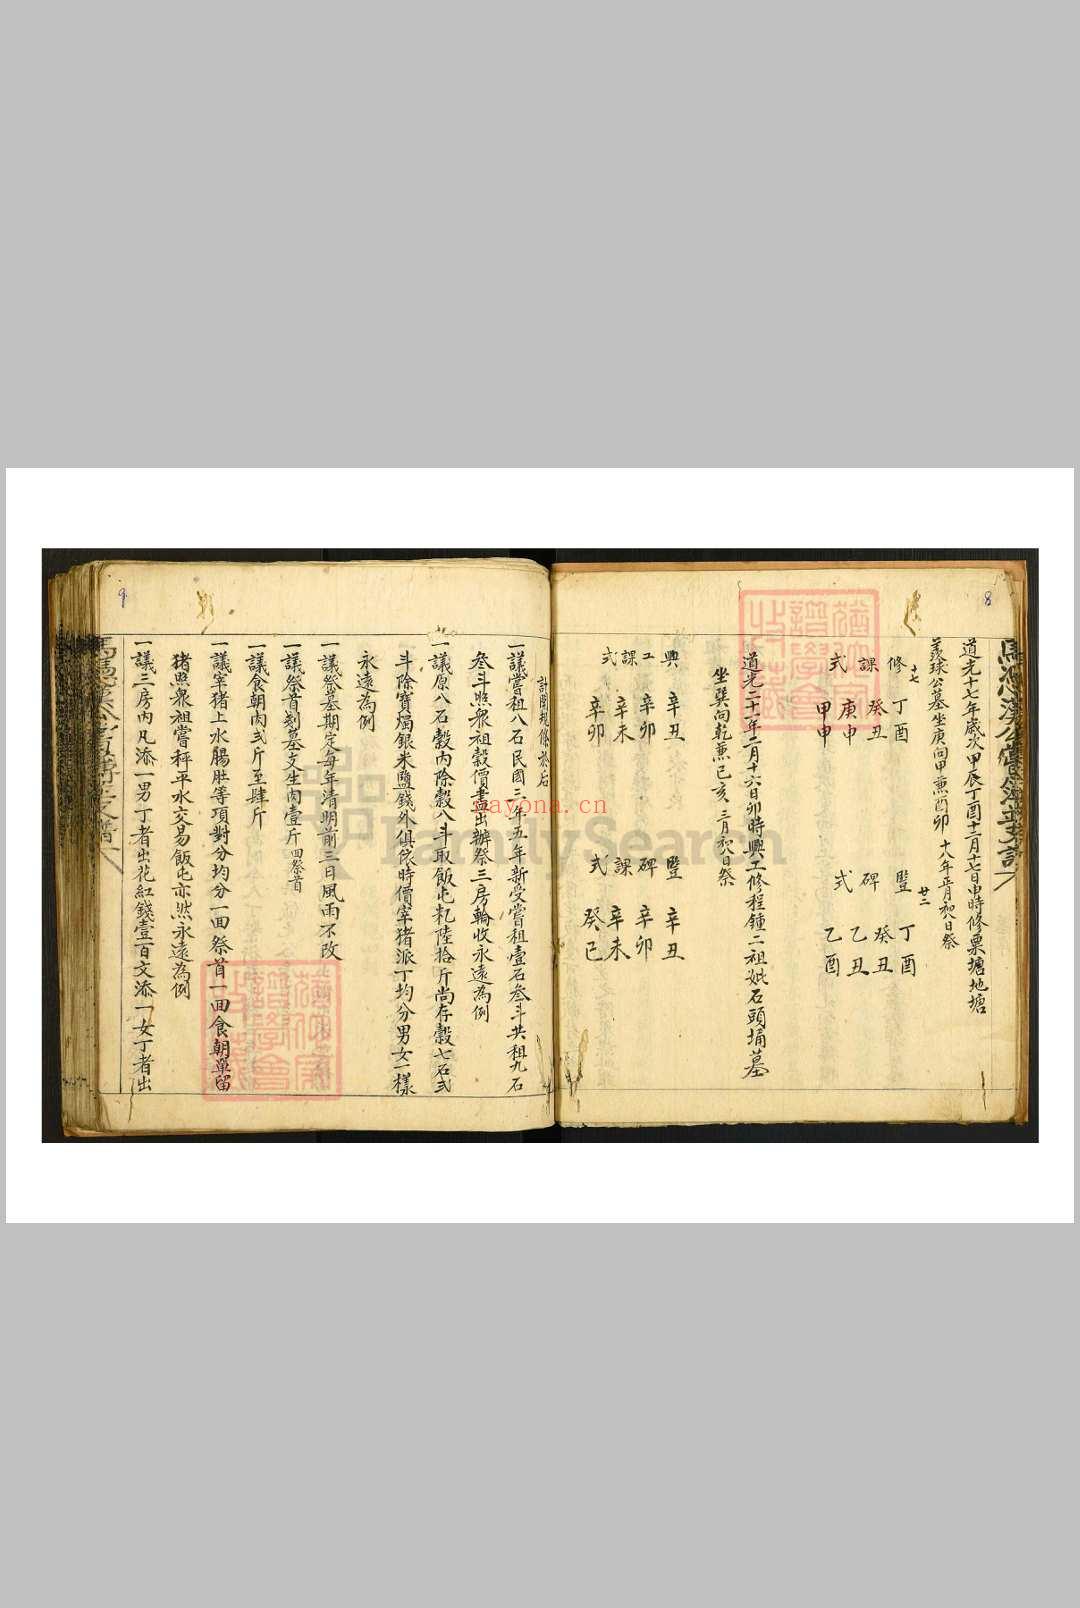 8
道光十七年歲次甲辰丁酉十二月十七日申時修栗塘地塘
義球公墓坐庚向甲兼酉卯 十八年正月初日祭
十七
廿二
修 丁酉 豎 丁酉
課 癸丑 碑 癸丑
式 庚申 式 乙丑
甲申 乙酉
道光二十一年二月十六日卯時興工修程鍾二祖妣石頭埇墓
坐巽向乾兼巳亥 三月初日祭
興 辛丑 豎 辛丑
工 辛卯 碑 辛卯
課 辛未 課 辛未
式 辛卯 式 癸巳
9
計開規條於后
一議嘗祖八石民國三年五年新受嘗租壹石叁斗共租九石
叁斗照眾祖穀價盡出辦祭三房輪收永遠為例
一議原八石穀內除穀八斗取飯屯籶陸拾斤尚存穀七石弍
斗除寶燭銀米鹽錢外俱依時價宰猪派丁均分男女一樣
永遠為例
一議祭墓期定每年清明前三日風雨不改
一議祭首剗墓支生肉壹斤 四祭首
一議食朝肉弍斤至肆斤
一議宰猪上水腸肚等項對分均分一面祭首一面食朝單留
猪照眾祖嘗秤平水交易飯屯亦然永遠為例
一議三房內凡添一男丁者出花紅錢壹百文添一女丁者出
FamilySearch
nayona.cn